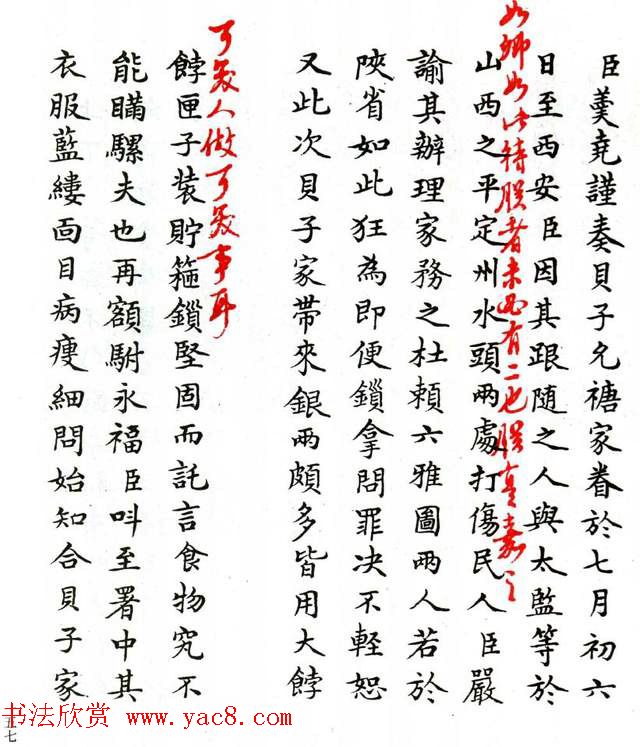 臣羹堯謹奏貝子允禟家眷於七月初六
日至西安臣因其跟隨之人與太監等於
如卿如此待朕者未必有二也朕實嘉之
山西之平定州水頭兩處打傷民人臣嚴
諭其辦理家務之杜賴六雅圖兩人若於
陝省如此狂為即便鎖拿問罪決不輕恕
又此次貝子家帶來銀兩頗多皆用大餑
可笑人做可笑事耳
餑匣子裝貯箍鎖堅固而託言食物究不
能瞞騾夫也再額駙永福臣呌至署中其
衣服藍縷面目病瘦細問始知合貝子家
五七
书法欣赏 www.yac8.com